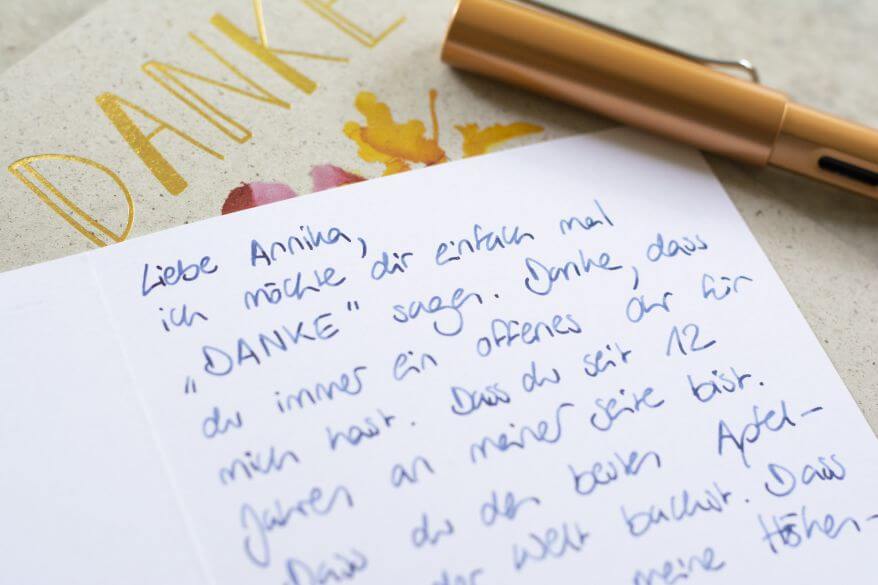 DANKE
Liebe Annika,
ich möchte dir einfach mal
„DANKE" sagen. Danke, dass
du immer ein offenes Ohr für
mich hast. Dass du seit 12
Jahren an meiner Seite bist.
Dass du den besten Apfel-
der Welt backst. Dass
meine Höhen-